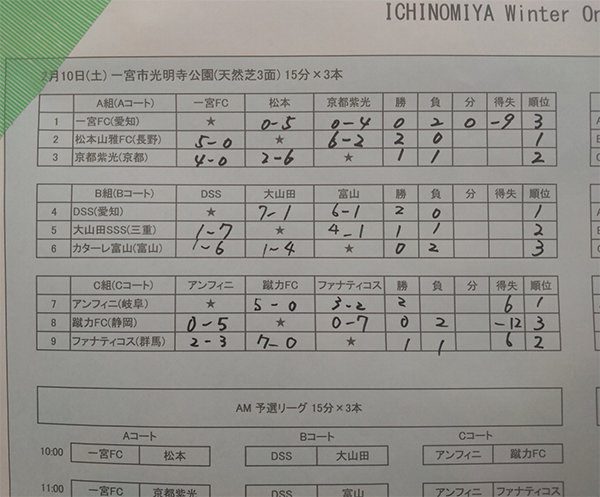 ICHINOMIYA Winter
2月10日(土) 一宮市光明寺公園(天然芝3面) 15分×3本
A組(Aコート) 一宮FC 松本 京都紫光 勝 負 分 得失 順位
1 一宮FC(愛知) ★ 0-5 0-4 0 2 0 -9 3
2 松本山雅FC(長野) 5-0 ★ 6-2 2 0 1
3 京都紫光(京都) 4-0 2-6 ★ 1 1 2
B組(Bコート) DSS 大山田 富山 勝 負 分 得失 順位
4 DSS(愛知) ★ 7-1 6-1 2 0 1
5 大山田SSS(三重) 1-7 ★ 4-1 1 1 2
6 カターレ富山(富山) 1-6 1-4 ★ 0 2 3
C組(Cコート) アンフィニ 蹴力FC ファナティコス 勝 負 分 得失 順位
7 アンフィニ(岐阜) ★ 5-0 3-2 2 6 1
8 蹴力FC(静岡) 0-5 ★ 0-7 0 2 -12 3
9 ファナティコス(群馬) 2-3 7-0 ★ 1 1 6 2
AM 予選リーグ 15分×3本
Aコート Bコート Cコート
10:00 一宮FC 松本 DSS 大山田 アンフィニ 蹴力FC
11:00 一宮FC 京都紫光 DSS 富山 アンフィニ ファナティコス